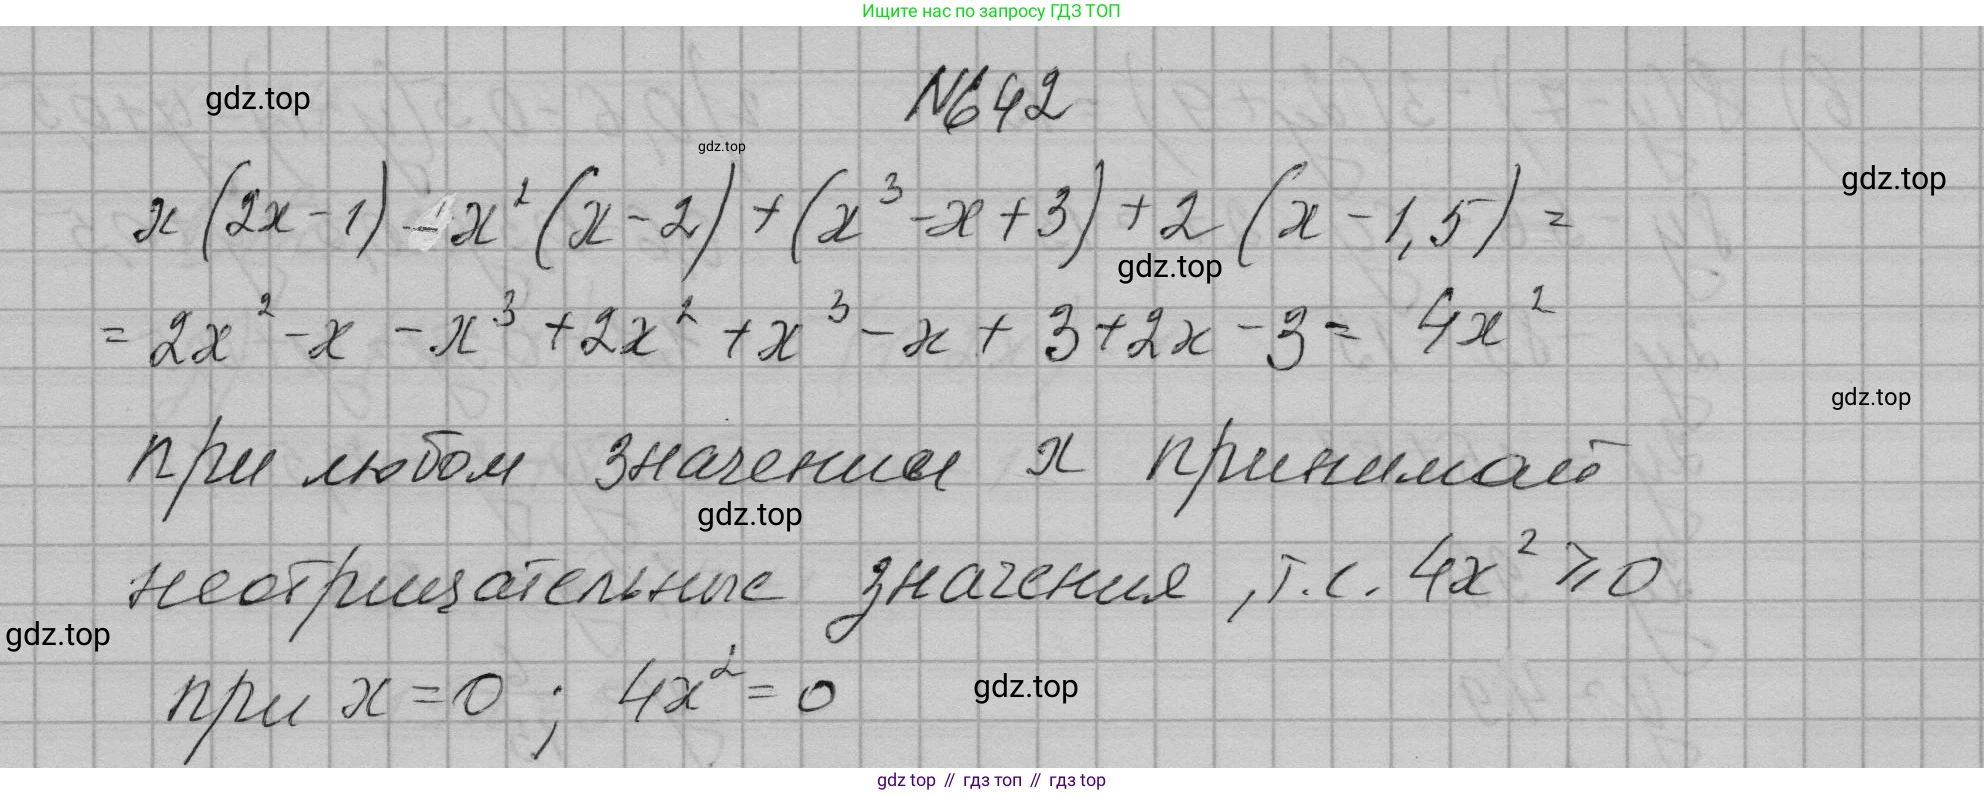 Ищите нас по запросу ГДЗ ТОП
gdz.top
N642
gdz.top
x(2x-1)-x²(x-2)+(x³-x+3)+2(x-1,5)=
gdz.top
gdz.top
=2x²-x-x³+2x²+x³-x+3+2x-3=4x²
gdz.top
при любом значении x принимает
gdz.top
неотрицательные значения, т.е. 4x²⩾0
gdz.top
при x=0; 4x²=0
gdz.top
gdz top // гдз топ // гдз top